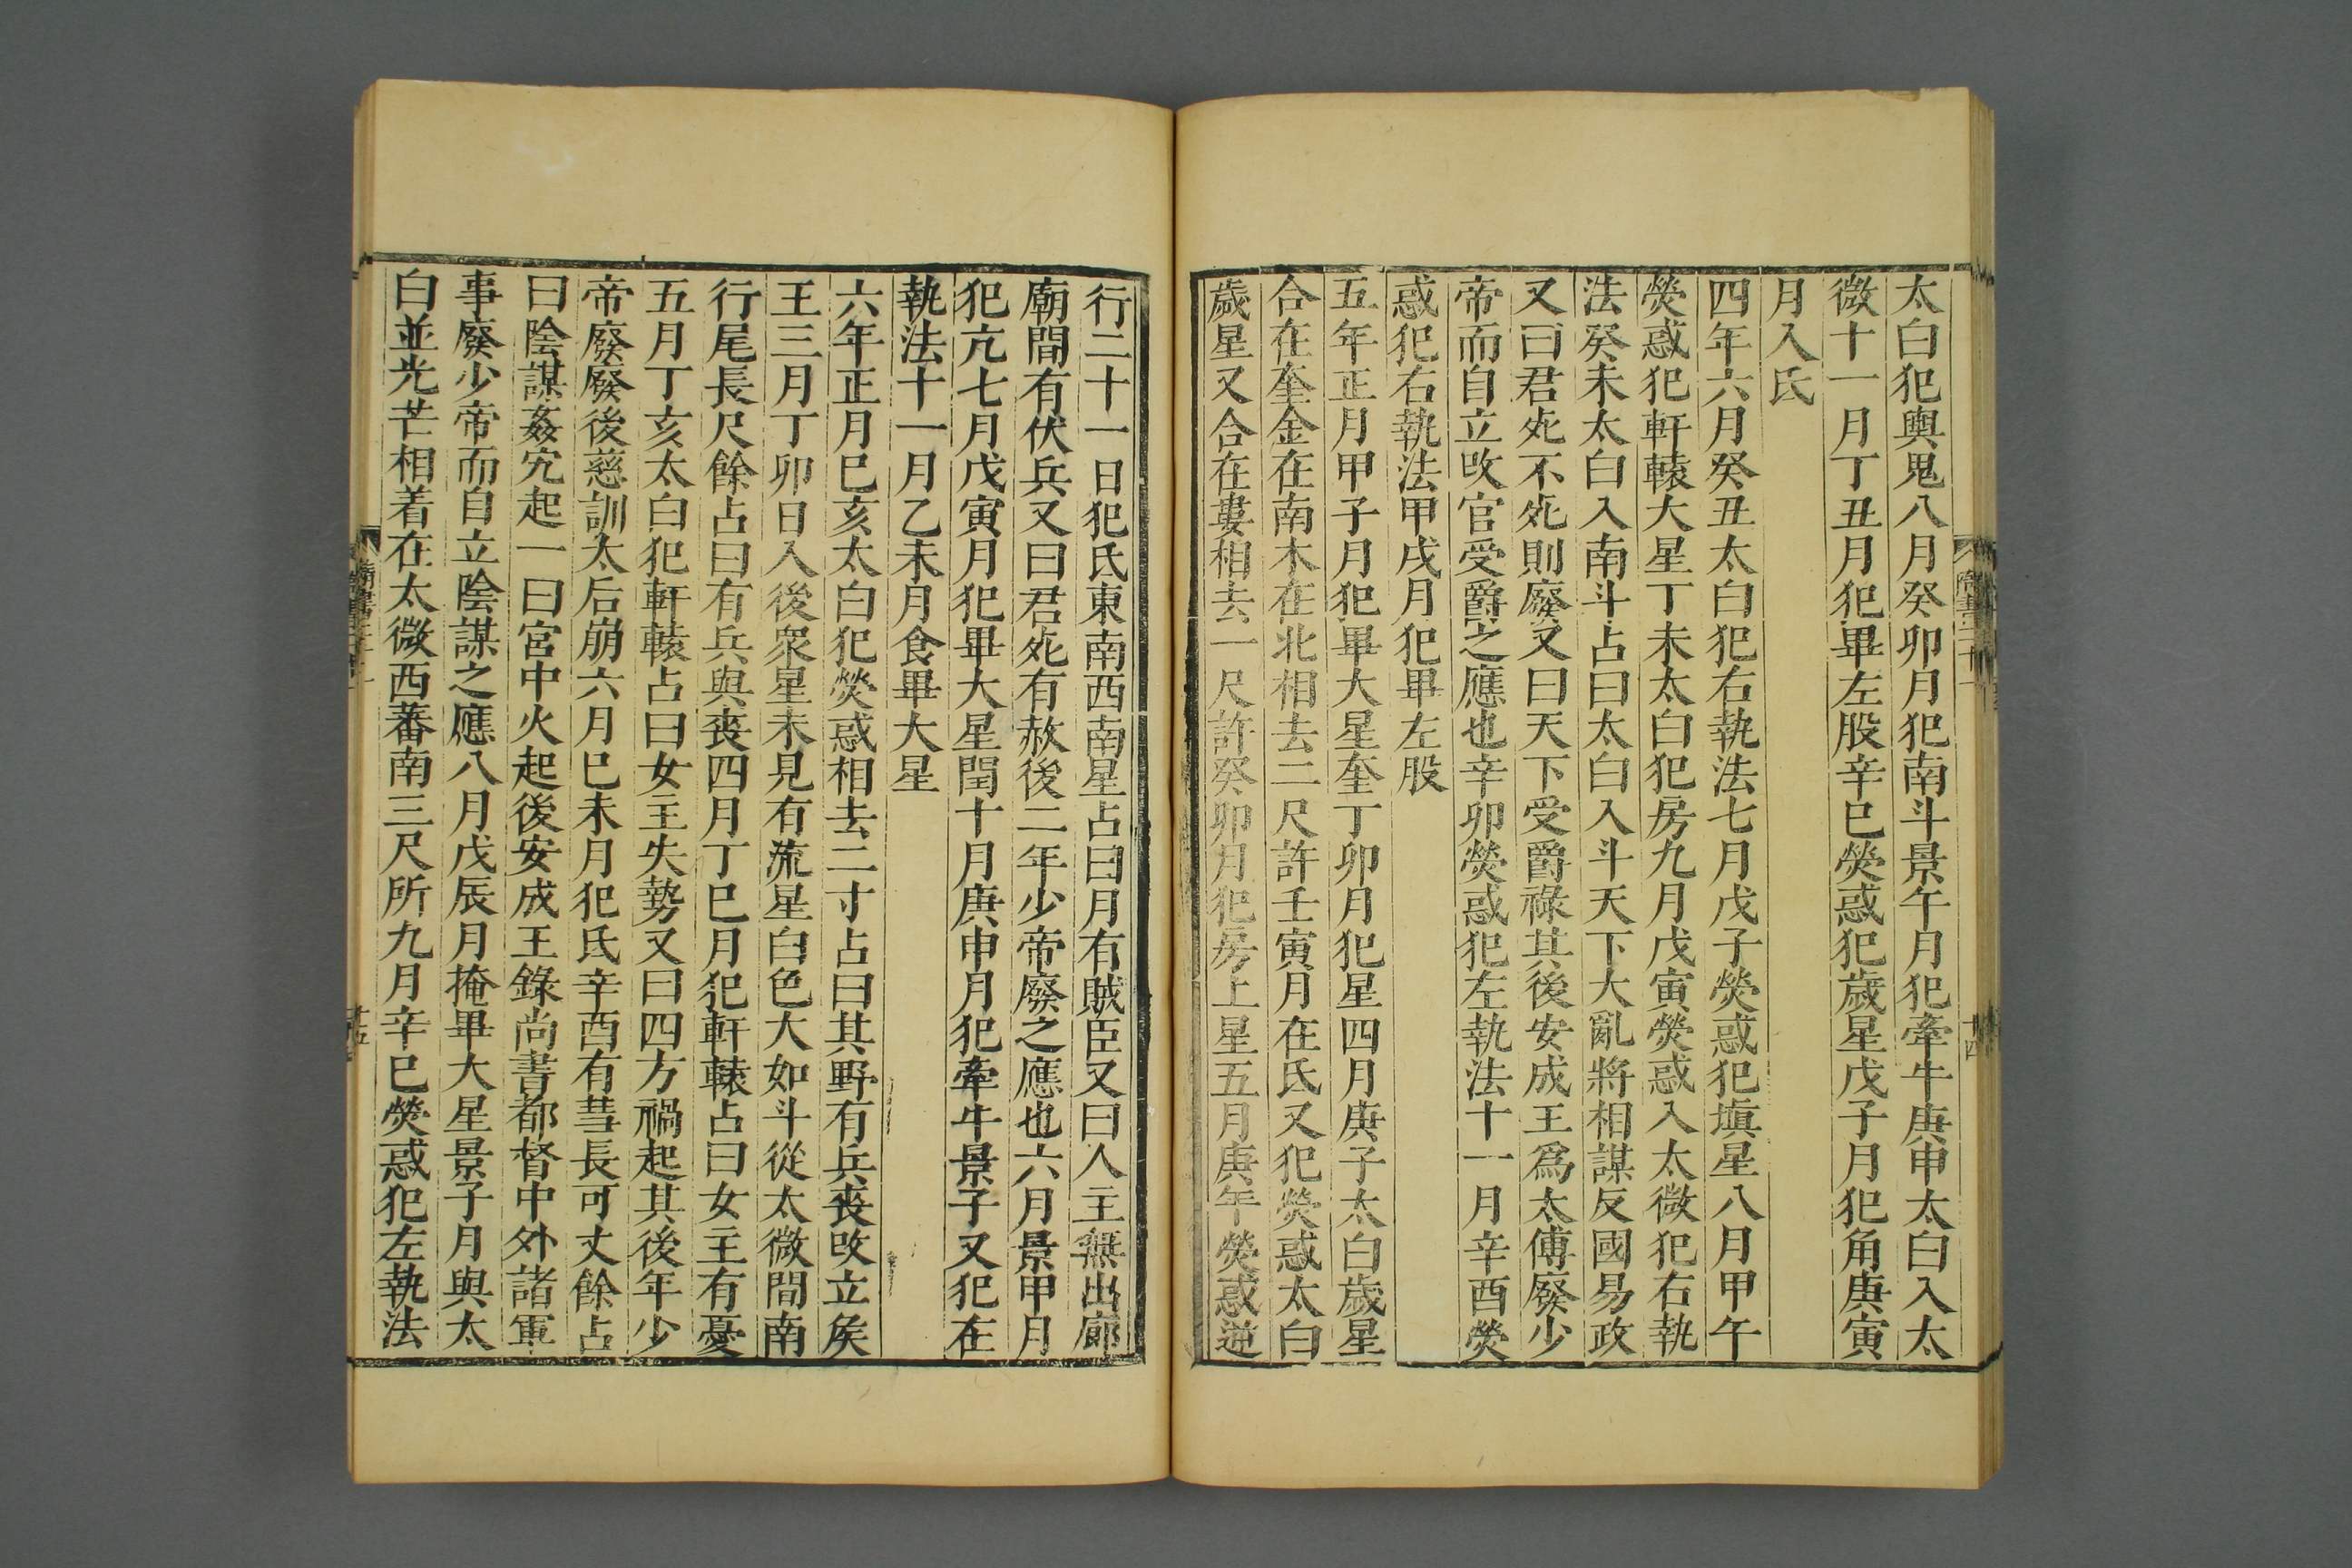 太白犯輿鬼八月癸卯月犯南斗景午月犯牽牛庚申太白入太
微十一月丁丑月犯畢左股辛巳熒惑犯歲星戊子月犯角庚寅
月入氐
四年六月癸丑太白犯右執法七月戊子熒惑犯塡星八月甲午
熒惑犯軒轅大星丁未太白犯房九月戊寅熒惑入太微犯右執
法癸未太白入南斗占曰太白入斗天下大亂將相謀反國易政
又曰君死不死則廢又曰天下受爵祿其後安成王爲太傅廢少
帝而自立改官受爵之應也辛卯熒惑犯左執法十一月辛酉熒
惑犯右執法甲戌月犯畢左股
五年正月甲子月犯畢大星奎丁卯月犯星四月庚子太白歲星
合在奎金在南木在北相去二尺許壬寅月在氐又犯熒惑太白
歲星又合在婁相去一尺許癸卯月犯房上星五月庚午熒惑逆
行二十一日犯氐東南西南星占曰月有賊臣又曰人主無出廊
廟間有伏兵又曰君死有赦後二年少帝廢之應也六月景甲月
犯亢七月戊寅月犯畢大星閏十月庚申月犯牽牛景子又犯在
執法十一月乙未月食畢大星
六年正月巳亥太白犯熒惑相去二寸占曰其野有兵喪改立矦
王三月丁卯日入後衆星未見有流星白色大如斗從太微間南
行尾長尺餘占曰有兵與喪四月丁巳月犯軒轅占曰女主有憂
五月丁亥太白犯軒轅占曰女主失勢又曰四方禍起其後年少
帝廢廢後慈訓太后崩六月巳未月犯氐辛酉有彗長可丈餘占
曰陰謀姦宄起一曰宮中火起後安成王錄尚書都督中外諸軍
事廢少帝而自立陰謀之應八月戊辰月掩畢大星景子月與太
白並光芒相着在太微西蕃南三尺所九月辛巳熒惑犯左執法